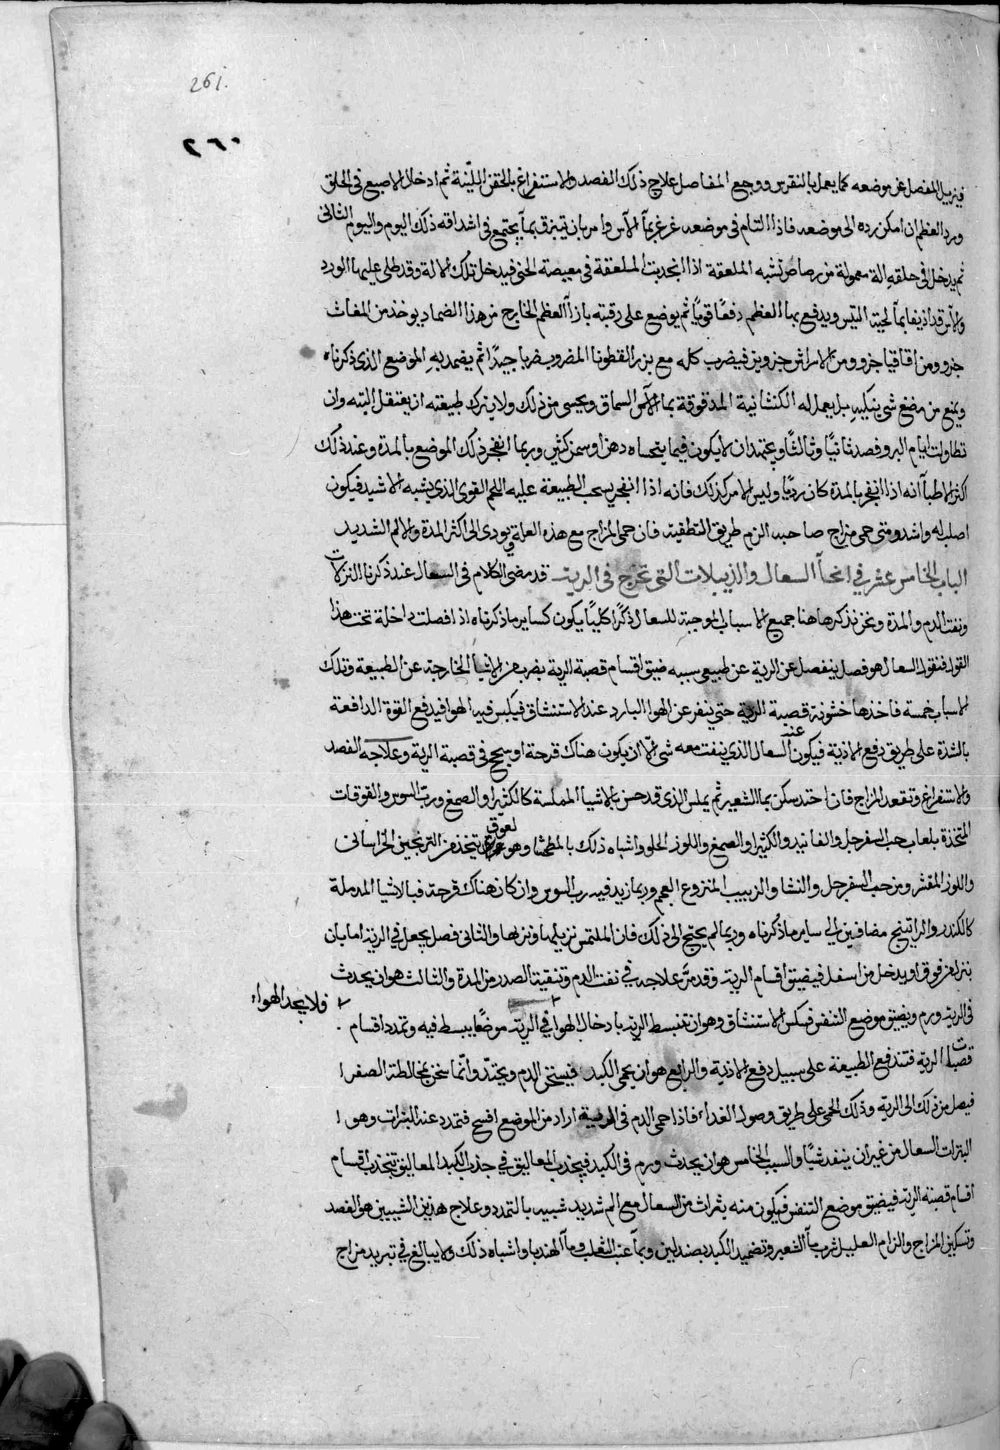 261.
٢٦٠
فيزيل المفصل عن موضعه كما يعمل بالنقرس ووجع المفاصل علاج ذلك الفصد والاستفراغ بالحقن اللينة ثم ادخال الاصبع في الحلق
ورد العظم ان امكن رده الى موضعه فاذا التام في موضعه غرغر بمآ الآس وامر بان يتبزق بمآ يجتمع في اشداقه ذلك اليوم واليوم الثاني
ثم يدخل في حلقه الة معمولة من رصاص تشبه الملعقة اذا انجذبت الملعقة في فيدخل تلك الالة وقد طلى عليها الورد
والآس قد اذيفا بمآ لحية التيس ويدفع بها العظم دفعًا قويًا ثم يوضع على رقبته بازآ العظم الخارج من هذا الضماد يوخذ من المغاث
جزو ومن اقاقيا جزو ومن الاراش جزوين فيضرب كله مع بزر القطونا المضروب ضربا جيدًا ثم يضمد به الموضع الذي ذكرناه
ويمنع من مضغ شي بفكيه بل يعمل له المدقوقة بمآ الآس السماق ويحسى من ذلك ولا يترك طبيعته ان يعتقل البته وان
تطاولت ايام البرو فصد ثانيًا وثالثًا ويجتهد ان لا يكون فيما يتحساه دهن وسمن كثير وربما انفجر ذلك الموضع بالمدة وعند ذلك
اكثر الاطبآ انه اذا انفجر بالمدة كان رديًا وليس الامر كذلك فانه اذا انفجر سحب الطبيعة عليه اللحم القوي الذي يشبه فيكون
اصلب له واشد ومتى حمى مزاج صاحبه الزم طريق التطفية فان حمى المزاج مع هذه العلة يودى الى اكثر المدة والالم الشديد
الباب الخامس عشر في انحآ السعال والذبيلات التي تخرج في الرية قد مضى الكلام في السعال عند ذكرنا النزلات
ونفث الدم والمدة ونحن نذكر هاهنا جميع الاسباب الموجبة للسعال ذكرًا كليًا يكون كساير ما ذكرناه اذا فصلت داخلة تحت هذا
القول فنقول السعال هو فصل ينفصل عن الرية عن طبيعى سببه ضيق اقسام قصبة الرية بضرب من الاشيآ الخارجة عن الطبيعة وتلك
الاسباب خمسة فاحدها خشونة قصبة الرية حتى ينفر عن الهوا البارد عند الاستنشاق فيكبس فيه الهوا فيدفع القوة الدافعة
بالشدة على طريق دفع الاذية فيكون عنه السعال الذي ينفث معه شى الّا ان يكون هناك قرحة او سحج في قصبة الرية وعلاجه الفصد
والاستفراغ وتفقد المزاج فان احتد سكن بمآ الشعير ثم يملس الذي قد خشن بالاشيآ المملسة كالكثيرا والصمغ ورب السوس والفوقات
المتخذة بلعاب حب السفرجل والفانيد والكثيرا والصمغ واللوز الحلو واشباه ذلك وهو لعوق يتخذ من الترنجبين الخراسانى
واللوز المقشر ومن حب السفرجل والنشا والزبيب المنزوع العجم وربما زيد فيه رب السوس وان كان هناك قرحة فبالاشيا المدملة
كالكندر والراتينج مضافين الى ساير ما ذكرناه وربما لم يحتج الى ذلك فان الملتمس تزيلها والثانى فصل يجعل في الرية اما بان
ينزل من فوق او يدخل من اسفل فيضيق اقسام الرية وقد مرّ علاجه في نفث الدم وتنقية الصدر من المدة والثالث هو ان يحدث
في الرية ورم ويضيق موضع التنفس فيكس الاستنشاق وهو ان تنبسط الرية بادخال الهوا في الرية موضعًا يبسط فيه وتمدد اقسام
فلا يجد الهواء
قصبات الرية فتندفع الطبيعة على سبيل دفع الاذية والرابع هو ان يحمى الكبد فيسخن الدم ويحتد وانما سخن بمخالطة الصفرا
فيصل من ذلك الى الرية وذلك الحمى على طريق وصول الغداء فاذا حمى الدم في الرية اراد من الموضع افسح فتمدد عند وهو
السعال من غير ان ينفث شيًا والسبب الخامس هو ان يحدث ورم في الكبد فيجذب المعاليق في جذب الكبد المعاليق تنجذب اقسام
اقسام قصبة الرية فيضيق موضع التنفس فيكون منه من السعال مع الم شديد شبيه بالتمدد وعلاج هذين الشيين هو الفصد
وتسكين المزاج والزام العليل شرب مآ الشعير وتضميد الكبد بصندلين وبمآ عنب الثعلب ومآ الهندبا واشباه ذلك ولا يبالغ في تبريد مزاج